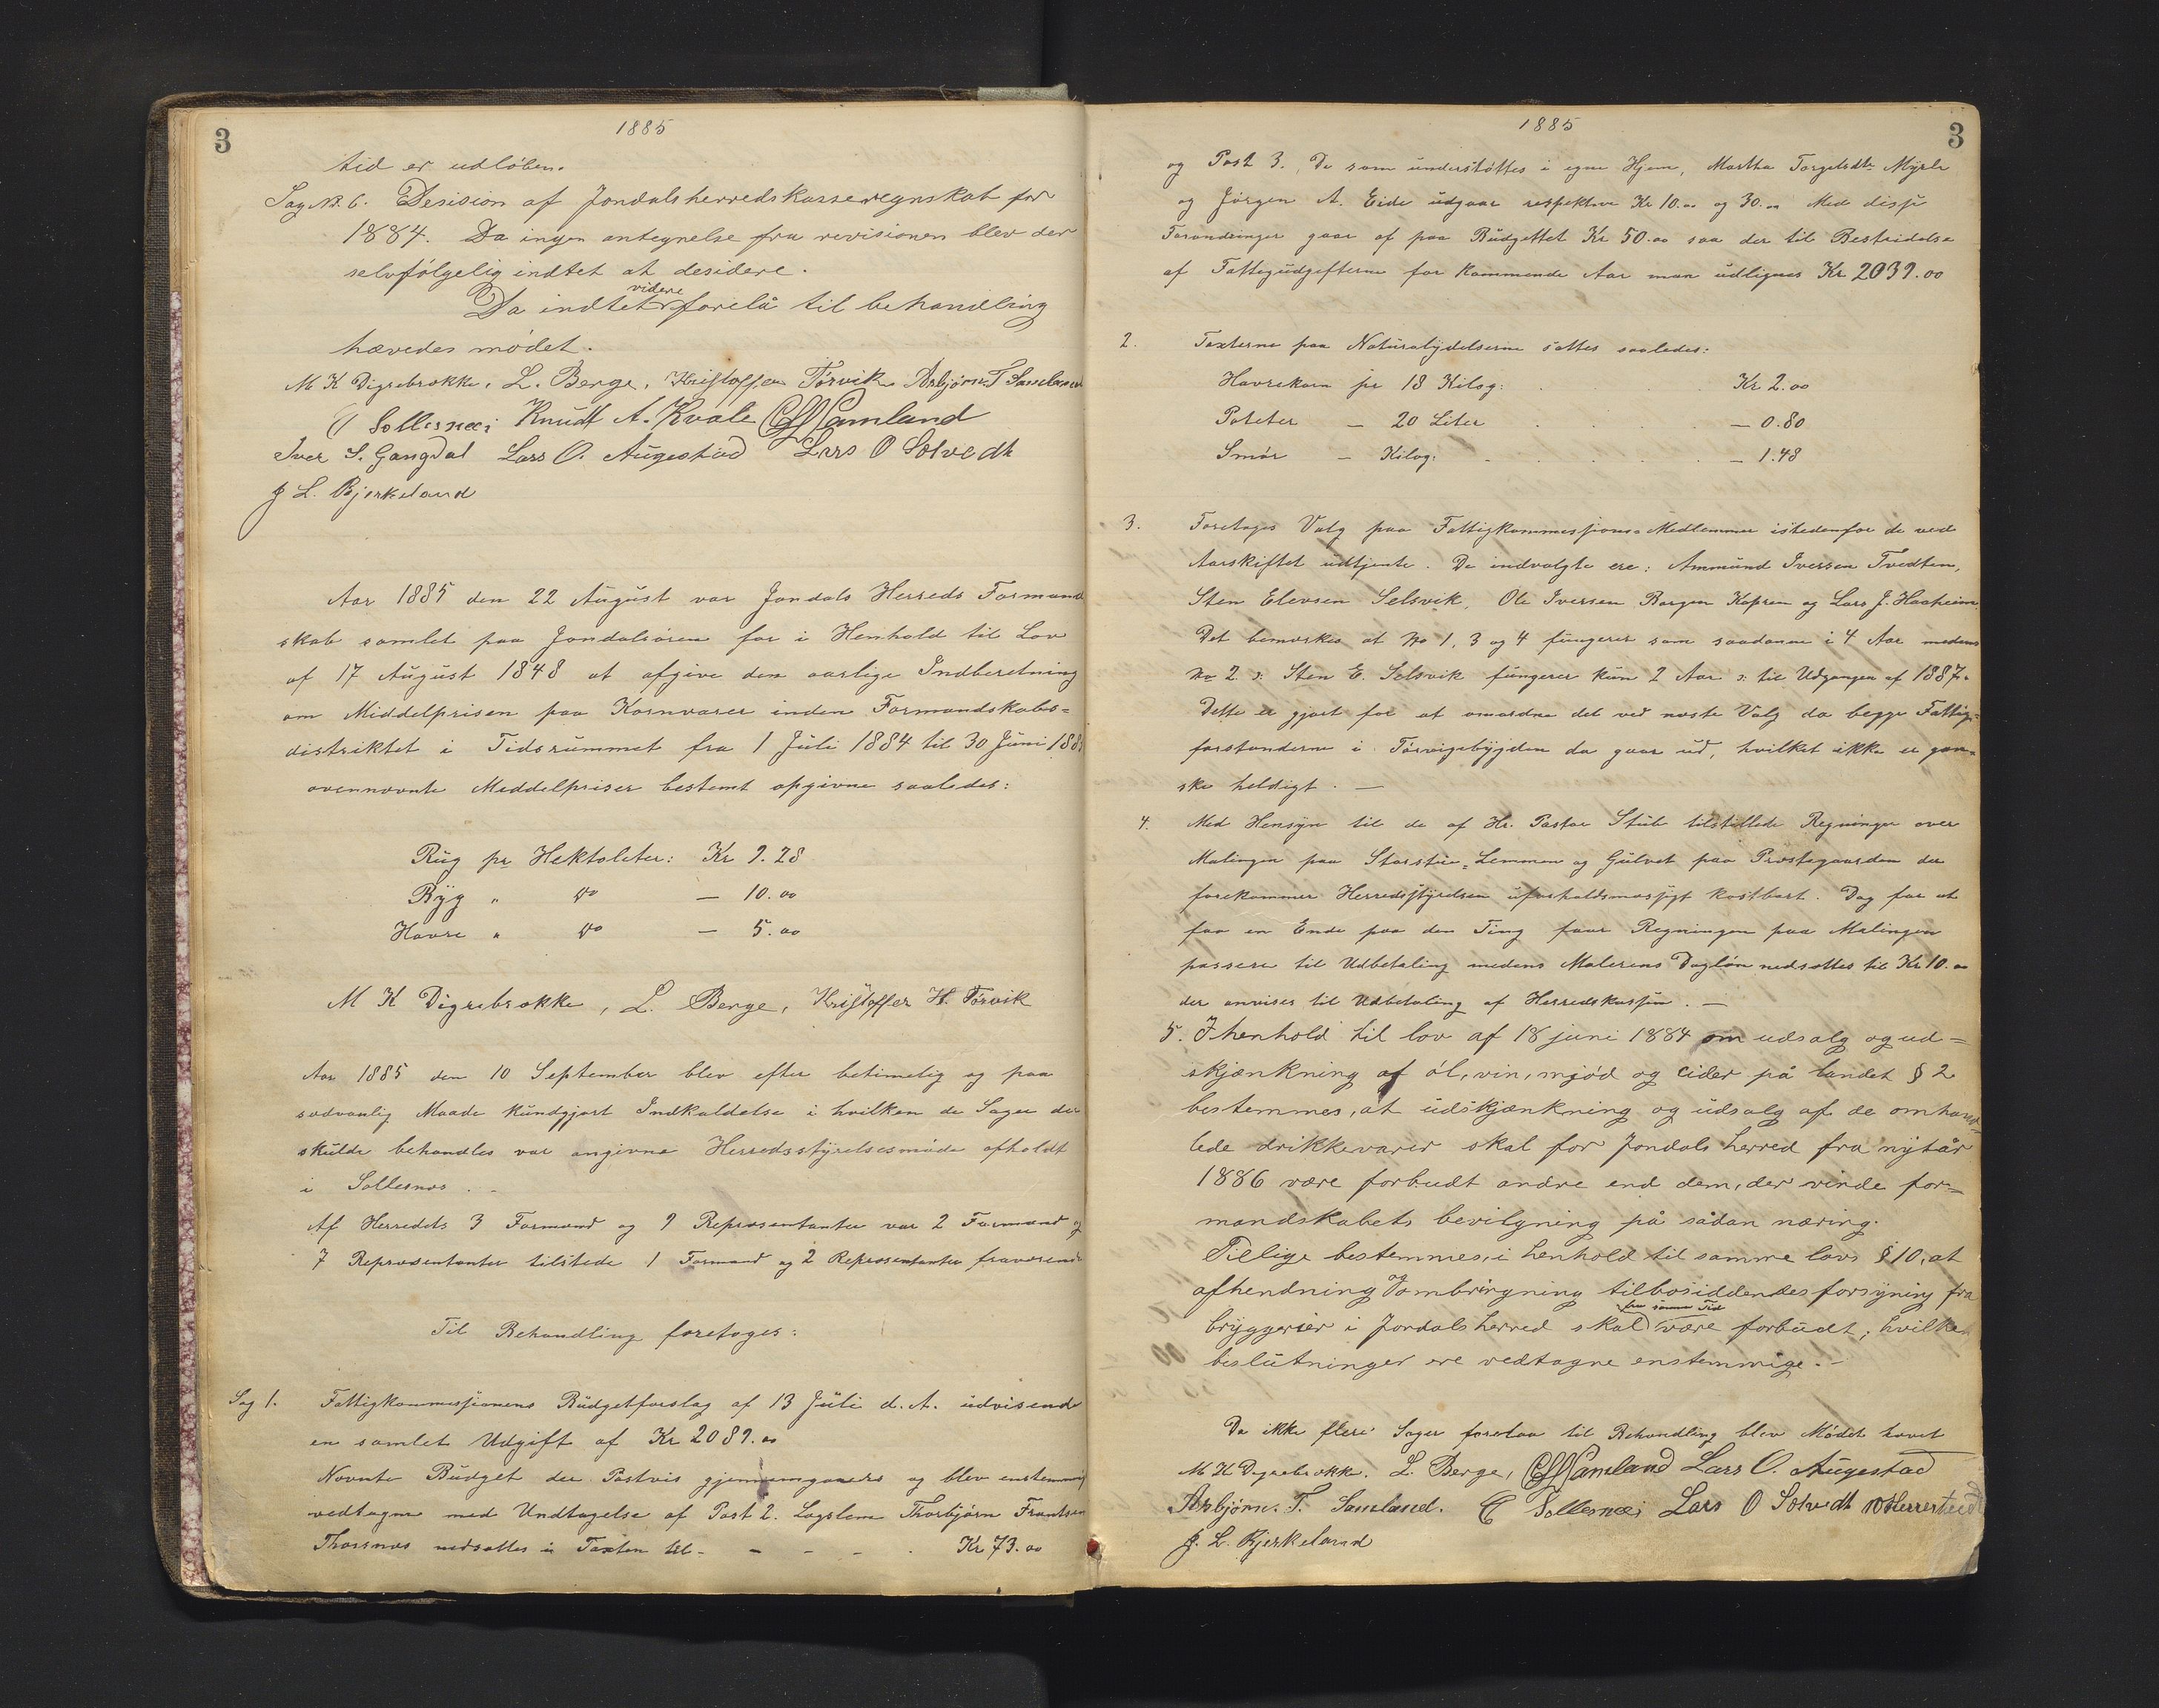 3
1885
tid er udløben.
Sag N. 6. Desision af Jondalsherredskasseregnskab for
1884. Da ingen antegnelse fra revisionen blev der
selvfølgelig indtet at desidere.
Da indtet videre forelå til behandling
hævedes mødet.
M K Digrebrække, L. Berge, Kristoffer Tørvik Asbjørn T Samland
Sollesnes Knudt A. Kvale Samland
Iver S. Gangdal Lars O. Augestad Lars O Solvedt
J L. Bjerkeland
Aar 1885 den 22 August var Jondals Herreds Formand
skab samlet paa Jondalsøren for i Henhold til Lov
af 17 August 1848 at afgive den aarlige Indberetning
om Middelprisen paa Kornvarer inden Formandskabs=
distriktet i Tidsrummet fra 1 Juli 1884 til 30 Juni 1885
ovennevnte Meddelpriser bestemt opgivne saaledes:
Rug pr Hektoleter: Kr 9.28
Byg " do — 10.00
Havre " do — 5.00
M K Digrebrække, L. Berge, Kristoffer H. Tørvik
Aar 1885 den 10 September blev efter betimelig og paa
sedvanlig Maade kundgjort Indkaldelse i hvilken de Sager der
skulde behandles var angivne Herredsstyrelsesmøde afholdt
i Sollesnes. -
Af Herredets 3 Formænd og 9 Repræsentanter var 2 Formænd og
7 Repræsentanter tilstede 1 Formand og 2 Repræsentanter fraværende
Til Behandling foretoges:
Sag 1. Fattigkommissjonens Budgetforslag af 13 Juli d. A. udvisende
en samlet Udgift af Kr 2089.00
Nevnte Budget der Postvis gjennemgaaes og blev enstemmig
vedtagne med Undtagelse af Post 2. Lagslem Thorbjørn Frantsen
Thorsnes nedsættes i Taxten til - - - - . Kr 73.00
1885
3
og Post 3. De som understøttes i egne Hjem, Martha Torgelsdtr Myrle
og Jørgen A. Eide udgaar respektive Kr 10.00 og 30.00 Med disse
Forandringer gaar af paa Budgettet Kr 50.00 saa der til Bestridelse
af Fattigudgifterne for kommende Aar man udlignes Kr 2039.00
2. Taxterne paa Naturalydelserne sættes saaledes:
Havrekorn pr 18 Kilog: . . Kr 2.00
Poteter — 20 Liter . . . — 0.80
Smør — Kilog: . . . . — 1.48
3. Foretages Valg paa Fattigkommissjons=Medlemmer istedenfor de ved
Aarskiftet udtjente. De indvalgte ere: Ammund Iversen Tvedten,
Sten Elevsen Selsvik, Ole Iversen Bargen Kapren og Lars J. Haaheim
Det bemærkes at No 1, 3 og 4 fungerer som saadanne i 4 Aar medens
No 2 ɔ: Sten E. Selsvik fungerer kun 2 Aar ɔ: til Udgangen af 1887.
Dette er gjort for at omordne det ved næste Valg da begge Fattig=
forstanderne i Tørvigebygden da gaar ud, hvilket ikke er gan=
ske heldigt. —
4. Med Hensyn til de af Hr. Pastor Stub tilstillede Regninger over
Malingen paa Storstue=Lemmen og Gulvet paa Præstegaarden der
forekommer Herredsstyrelsen uforholdsmæssigt kostbart. Dog for at
faa en Ende paa den Ting faar Regningen paa Malingen
passere til Udbetaling medens Malerens Dagløn nedsættes til Kr 10.00
der anvises til Udbetaling af Herredskassen. —
5. I henhold til lov af 18 juni 1884 om udsalg og ud=
skjænkning af øl, vin, mjød og cider på landet § 2
bestemmes, at udskjænkning og udsalg af de omhand=
lede drikkevarer skal for Jondals herred fra nytår
1886 være forbudt andre end dem, der vinde for=
mandskabets bevilgning på sådan næring.
Tillige bestemmes, i henhold til samme lovs § 10, at
afhendning og ombringning til bosiddendes forsyning fra
bryggerier i Jondals herred skal fra samme Tid være forbudt; hvilke
beslutninger ere vedtagne enstemmige. -
Da ikke flere Sager forelaa til Behandling blev Mødet hævet
M K Digrebrække. L. Berge, Samland Lars O. Augestad
Asbjørn. T. Samland. Sollesnes Lars O Solvedt Herrestvedt
J. L. Bjerkeland